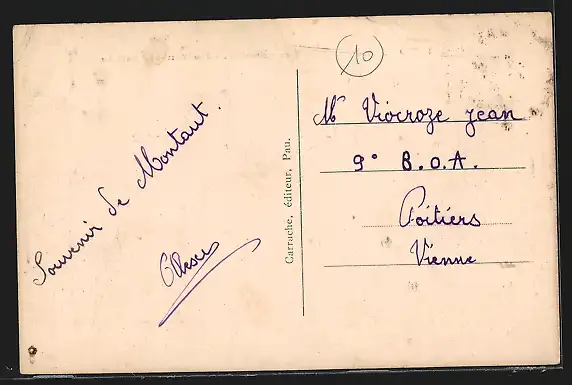 Souvenir de Montaut.
Carrache, éditeur, Pau.
10
Mr Viocroze Jean
9° B.O.A.
Poitiers
Vienne